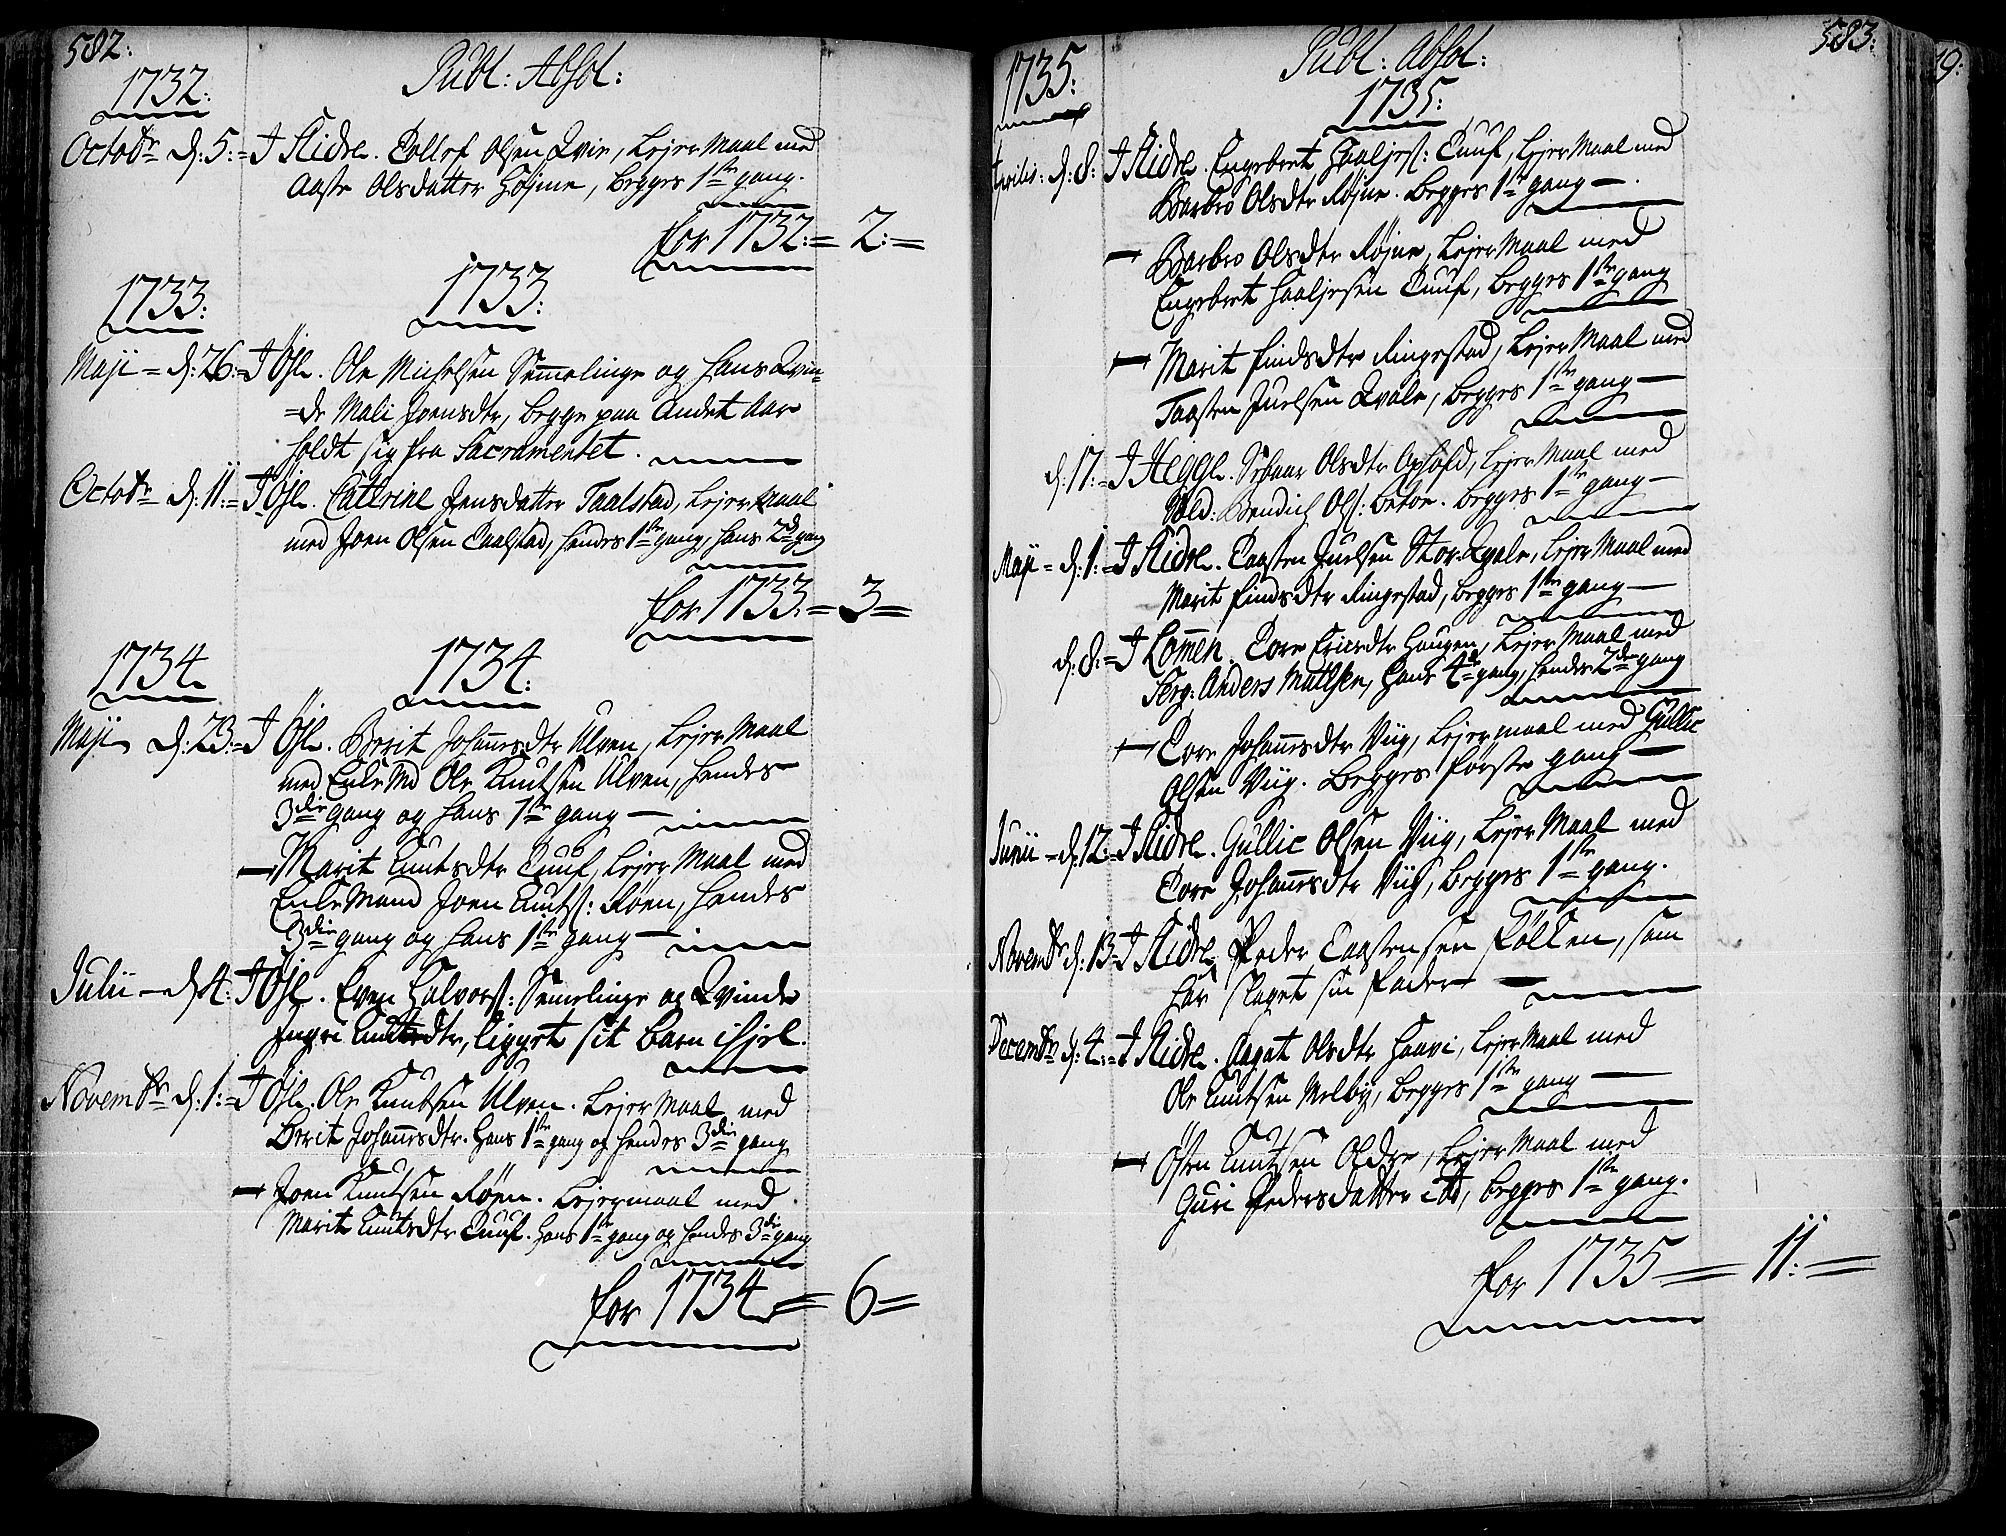 582:
1732:
Publ: Absol:
Octobr d: 5: = I Slidre. Tollef Olsen Qvie, Lejer Maal med
Aaste Olsdatter Höjme, begges 1ste gang.
for 1732: = 2: =
1733:
1733:
Maji = d: 26: = I Öjl. Ole Michelsen Semmelinge og hans Qvin=
=de Mali Joensdtr, begge paa andet Aar
holdt sig fra Sacramentet.
Octobr d: 11: = I Öjl. Cathrine Jensdatter Taalstad, Lejer Maal
med Joen Olsen Taalstad, hendes 1ste gang, hans 2den gang
for 1733. = 3 =
1734.
1734:
Maji d: 23: = I Öjl. Berit Johannesdtr Ulven, Lejer Maal
med Enke Md Ole Knutsen Ulven, hendes
3die gang og hans 1ste gang —
— Marit Knutsdtr Tuuf, Lejer Maal med
Enke Mand Joen Knuts: Röen, hendes
3die gang og hans 1ste gang —
Julii — d. 4: I Öjl. Even Halvors: Semelinge og Qvinde
Ingri Knutsdtr, ligget sit barn ihjel.
Novembr d: 1: = I Öjl. Ole Knutsen Ulven. Lejer Maal med
Berit Johannesdtr. Hans 1ste gang og hendes 3die gang
— Joen Knutsen Röen. Lejermaal med
Marit Knutsdtr Tuuf. Hans 1ste gang og hendes 3die gang
for 1734 = 6 =
583:
1735:
Publ: Absol:
1735:
Aprilis: d: 8: I Slidre. Engebret Haaljes: Tuuf, Lejer Maal med
Barbro Olsdtr Röjne. begges 1ste gang —.
— Barbro Olsdtr Röjne, Lejer Maal med
Engebret Haaljesen Tuuf, begges 1ste gang
— Marit Findsdtr Ringestad, Lejer Maal med
Taasten Juelsen Qvale, begges 1ste gang —
d: 17: = I Hegge. Olsdtr Lejer Maal med
Sold: Bendich Ols: begges 1ste gang —
Maji = d: 1: = I Slidre. Taasten Juelsen Stor-Qvale, Lejer Maal med
Marit Findsdtr Ringestad, begges 1ste gang —
d: 8: = I Lommen. Tore Ericsdtr Haugen, Lejer Maal med
Serg: Anders Mattsen, hans 4de gang, hendes 2den gang
— Tore Johannesdtr Viig, Lejermaal med Gullic
Olsen Viig. Begges første gang —
Junii = d: 12: = I Slidre. Gullic Olsen Viig, Lejer Maal med
Tore Johannesdtr Viig, begges 1ste gang.
Novembr d: 13 = I Slidre. Peder Taastensen som
har slaget sin Fader —
Decembr d: 4: = I Slidre. Aagot Olsdtr Haavi, Lejer Maal med
Ole Knutsen Melby, begges 1ste gang —
— Östen Knutsen Lejer Maal med
Guri Pedersdatter begges 1ste gang.
for 1735 = 11: =
19: